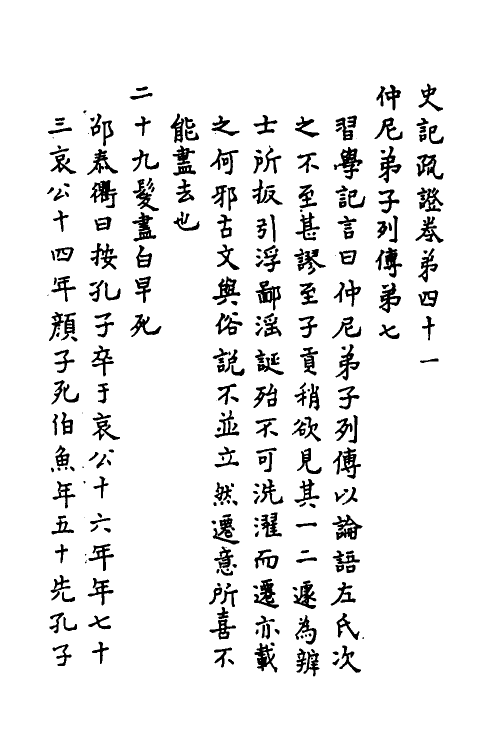 史記疏證卷第四十一
仲尼弟子列傳第七
習學記言曰仲尼弟子列傳以論語左氏次
之不至甚謬至子貢稍欲見其一二遽為辯
士所扳引浮鄙淫誕殆不可洗濯而遷亦載
之何邪古文與俗說不並立然遷意所喜不
能盡去也
二十九髮盡白早死
邵泰衢曰按孔子卒于哀公十六年年七十
三哀公十四年顏子死伯魚年五十先孔子